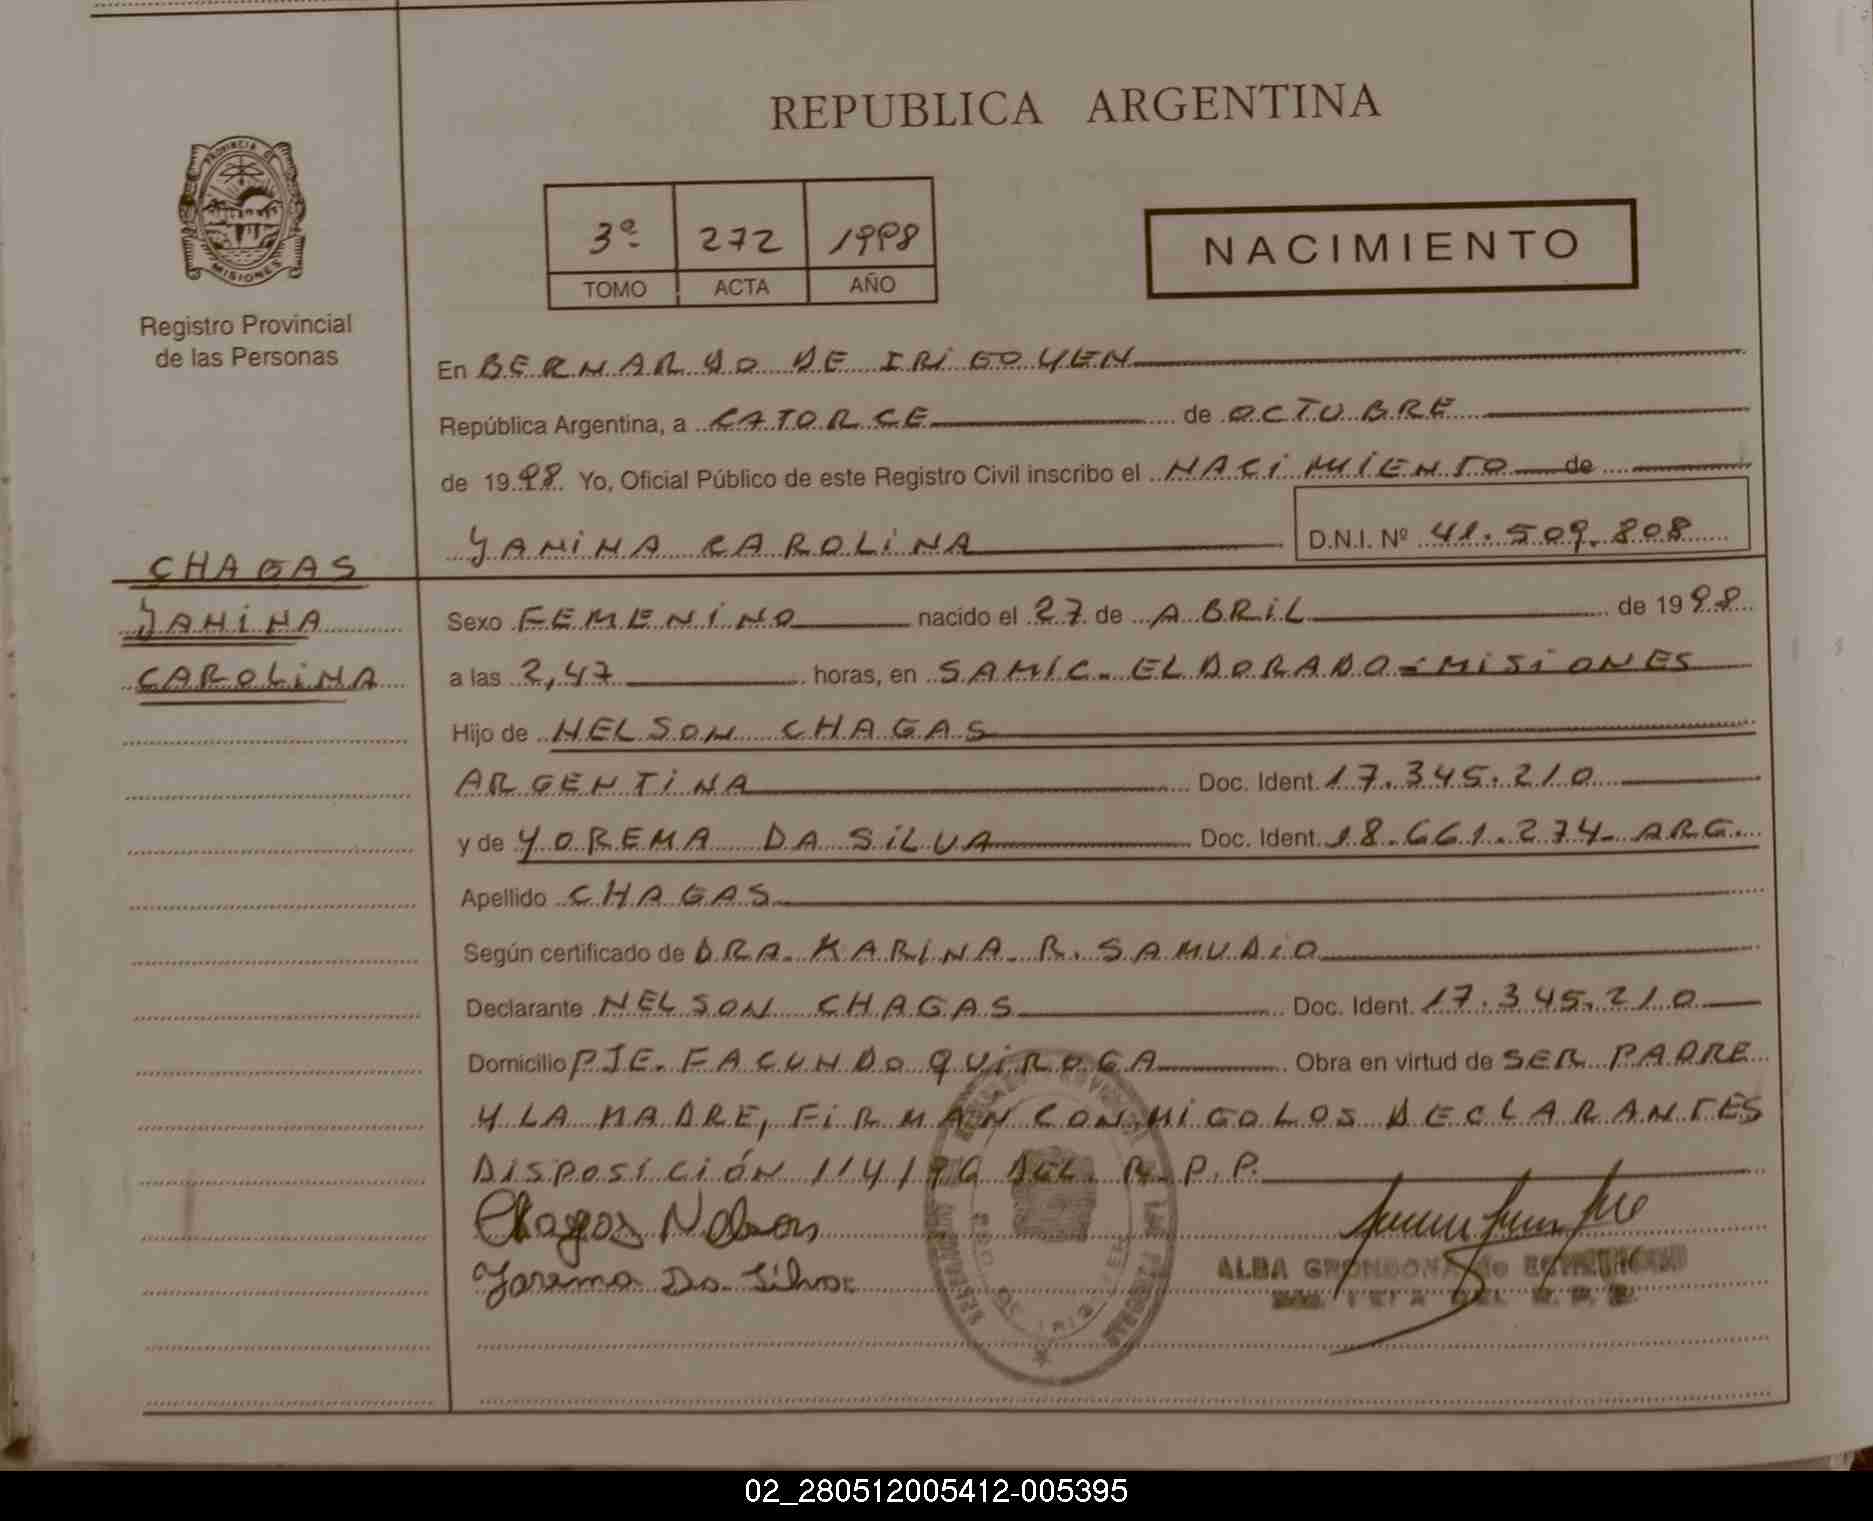 REPUBLICA ARGENTINA
PROVINCIA DE
MISIONES
Registro Provincial
de las Personas
3º 272 1998
TOMO ACTA AÑO
NACIMIENTO
En BERNARDO DE IRIGOYEN
República Argentina, a CATORCE de OCTUBRE
de 1998 Yo, Oficial Público de este Registro Civil inscribo el NACIMIENTO de
YANINA CAROLINA D.N.I. Nº 41.509.808
CHAGAS
YANINA
CAROLINA
Sexo FEMENINO nacido el 27 de ABRIL de 1998
a las 2,47 horas, en SAMIC. ELDORADO=MISIONES
Hijo de NELSON CHAGAS
ARGENTINA Doc. Ident. 17.345.210
y de YOREMA DA SILVA Doc. Ident. 18.661.274- ARG.
Apellido CHAGAS
Según certificado de DRA. KARINA. R. SAMUDIO
Declarante NELSON CHAGAS Doc. Ident. 17.345.210
Domicilio PJE. FACUNDO QUIROGA Obra en virtud de SER PADRE
Y LA MADRE, FIRMAN CONMIGO LOS DECLARANTES
DISPOSICIÓN 114/96 DEL R.P.P.
Chagas Nelson
Yorema Da Silva
ALBA GRONDONA de
02_280512005412-005395